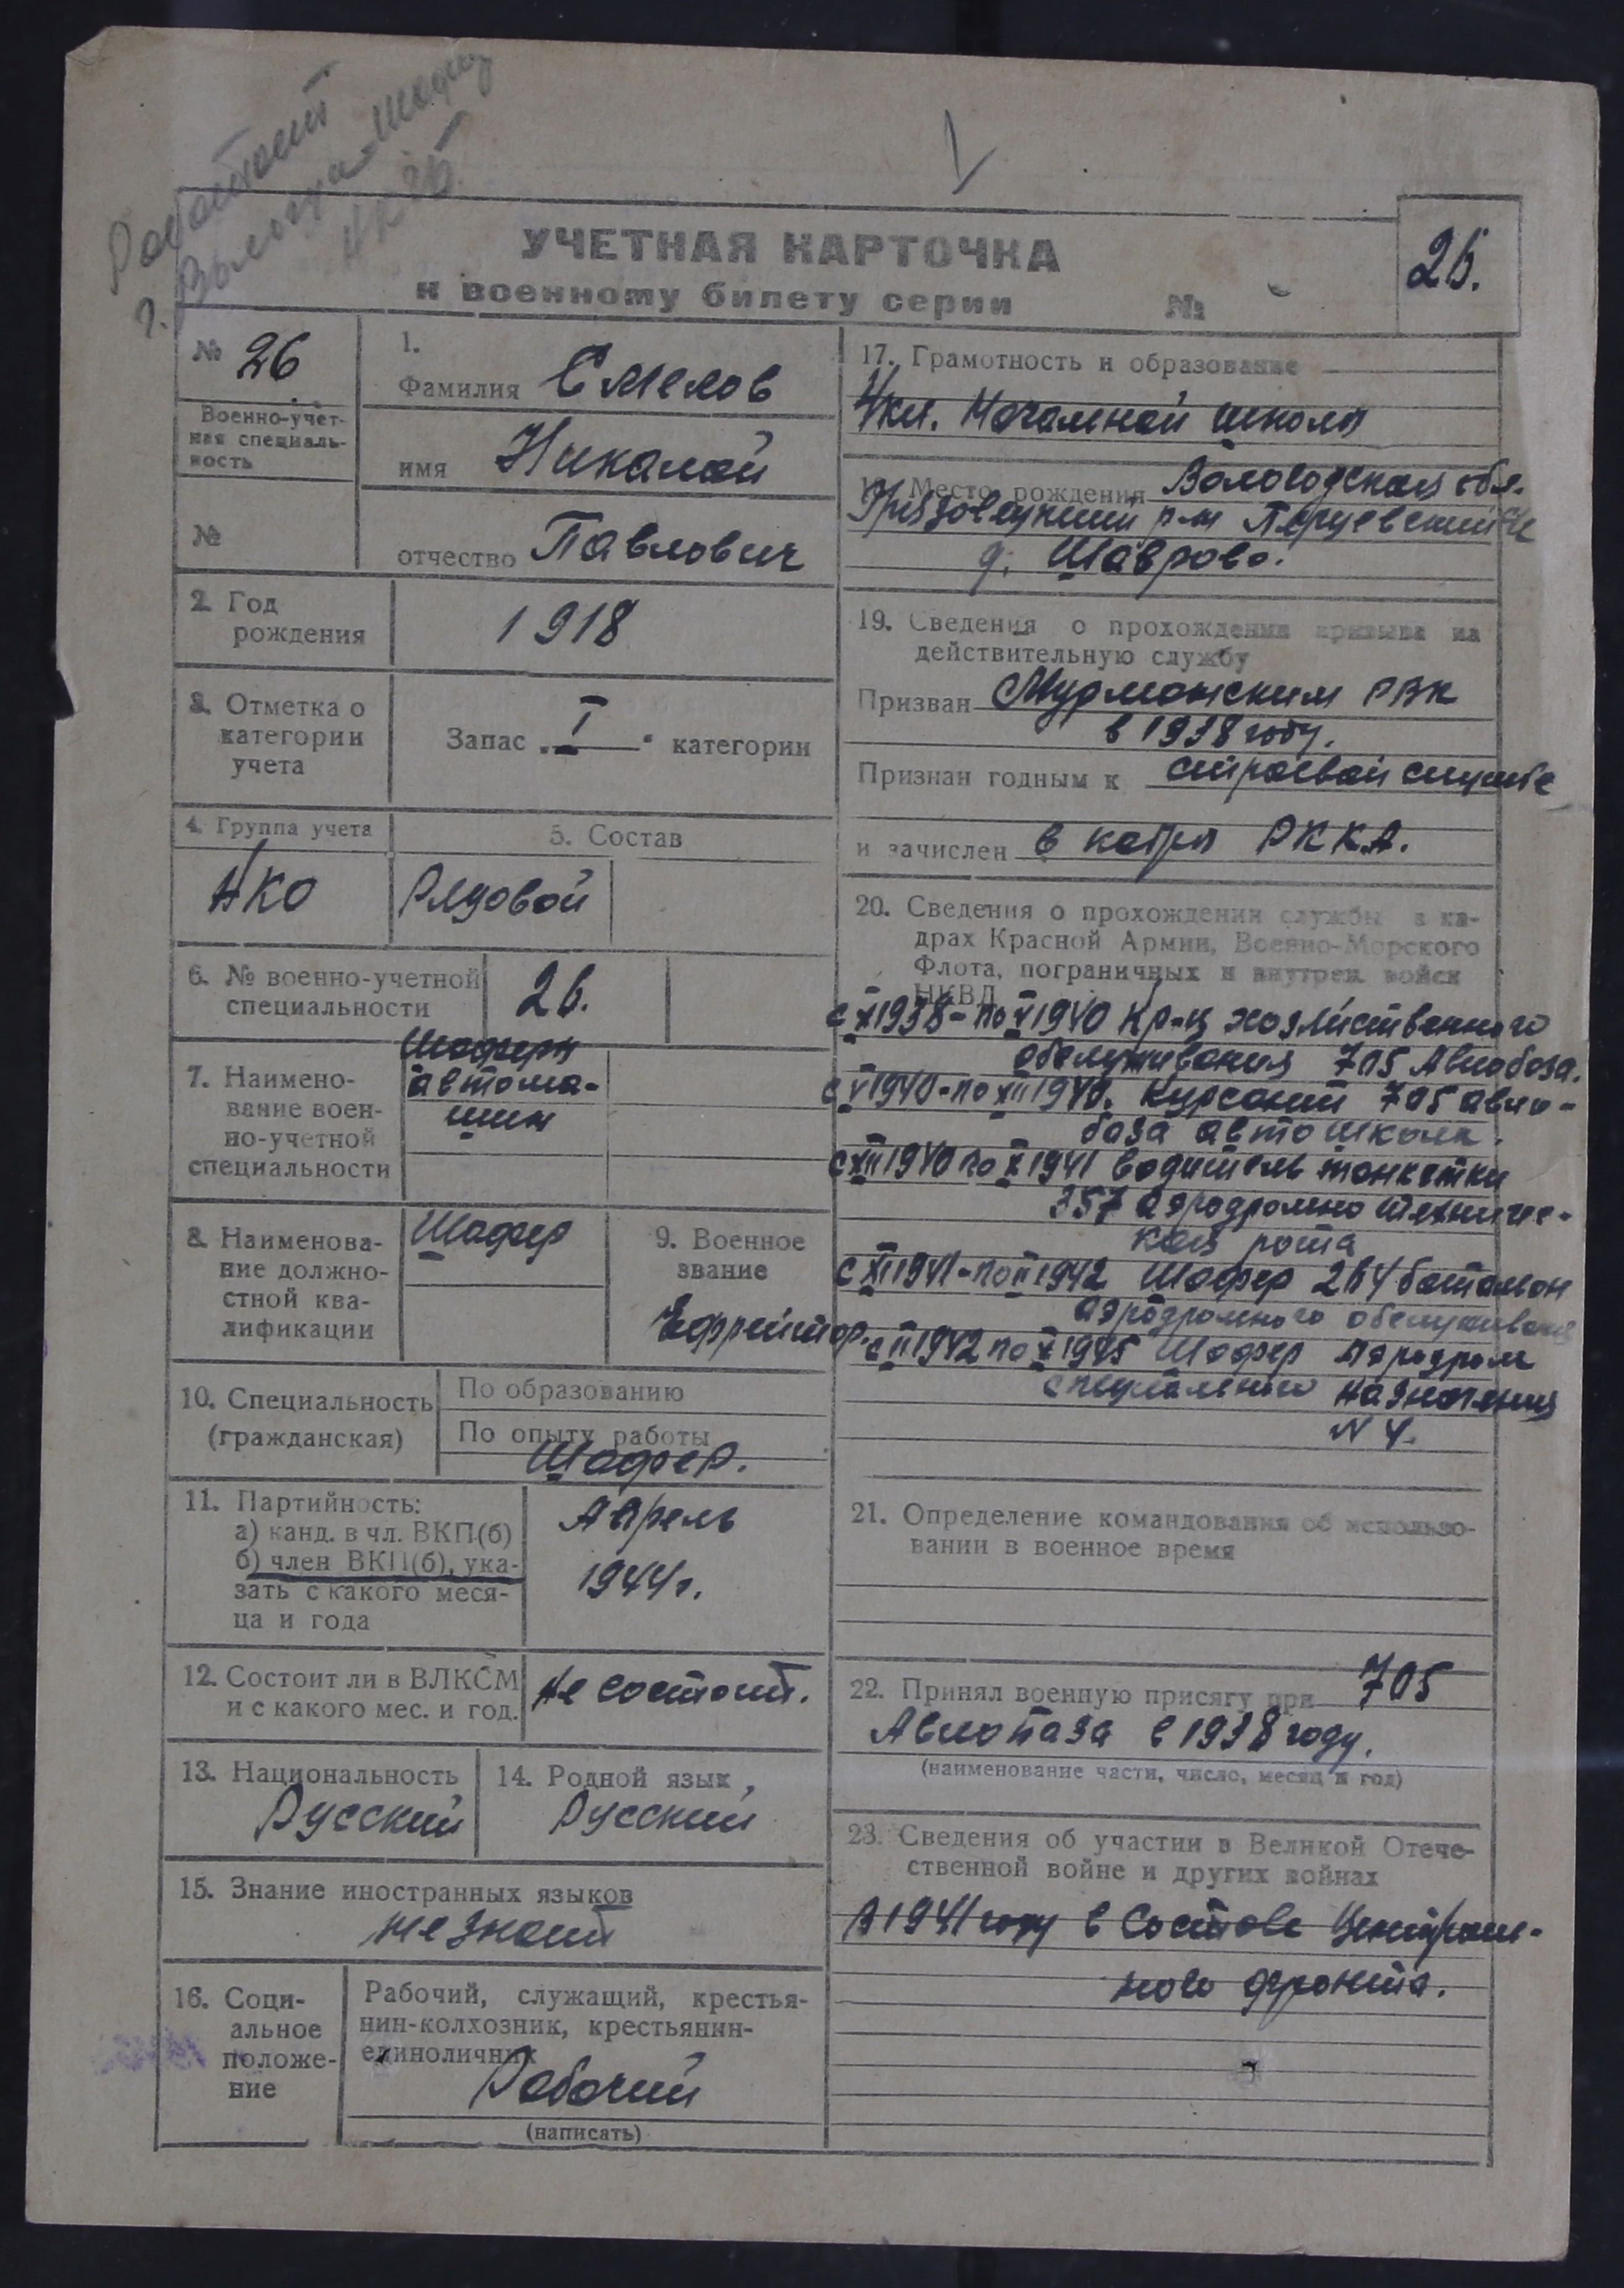 Работает
г. Вологда Шофер
УЧЕТНАЯ КАРТОЧКА
к военному билету серии №
26.
№ 26
Военно-учет-
ная специаль-
ность
№
1.
Фамилия Смелов
имя Николай
отчество Павлович
2. Год
рождения
1918
3. Отметка о
категории
учета
Запас „I“ категории
4. Группа учета
5. Состав
НКО
Рядовой
6. № военно-учетной
специальности
26.
7. Наимено-
вание воен-
но-учетной
специальности
Шофера
автома-
шин
8. Наименова-
ние должно-
стной ква-
лификации
Шофер
9. Военное
звание
Ефрейтор.
10. Специальность
(гражданская)
По образованию
По опыту работы
Шофер.
11. Партийность:
а) канд. в чл. ВКП(б)
б) член ВКП(б), ука-
зать с какого меся-
ца и года
Апрель
1944г.
12. Состоит ли в ВЛКСМ
и с какого мес. и год.
Не состоит.
13. Национальность
Русский
14. Родной язык
Русский
15. Знание иностранных языков
не знает
16. Соци-
альное
положе-
ние
Рабочий, служащий, крестья-
нин-колхозник, крестьянин-
единоличник
Рабочий
(написать)
17. Грамотность и образование
4 кл. Начальной школы
Место рождения Вологодская обл.
Грязовецкий р-н Перцевский с/с
д. Шаврово.
19. Сведения о прохождении призыва на
действительную службу
Призван Мурманским РВК
в 1938 году.
Признан годным к строевой службе
и зачислен в кадры РККА.
20. Сведения о прохождении службы в ка-
драх Красной Армии, Военно-Морского
Флота, пограничных и внутрен. войск
НКВД
с XI 1938 - по V 1940 Кр-ц хозяйственного
обслуживания 705 Авиабаза.
с V 1940 - по XII 1940. Курсант 705 авиа-
база автошкола.
с XII 1940 по X 1941 водитель танкетки
357 аэродромно техниче-
кая рота
с XI 1941 - по II 1942 Шофер 264 батальон
аэродромного обслуживания
с II 1942 по X 1945 Шофер Аэродром
специального назначения
N 4.
21. Определение командования об использо-
вании в военное время
22. Принял военную присягу при 705
Авиапаза в 1938 году.
(наименование части, число, месяц и год)
23. Сведения об участии в Великой Отече-
ственной войне и других войнах
В 1941 году в составе Централь-
ного фронта.